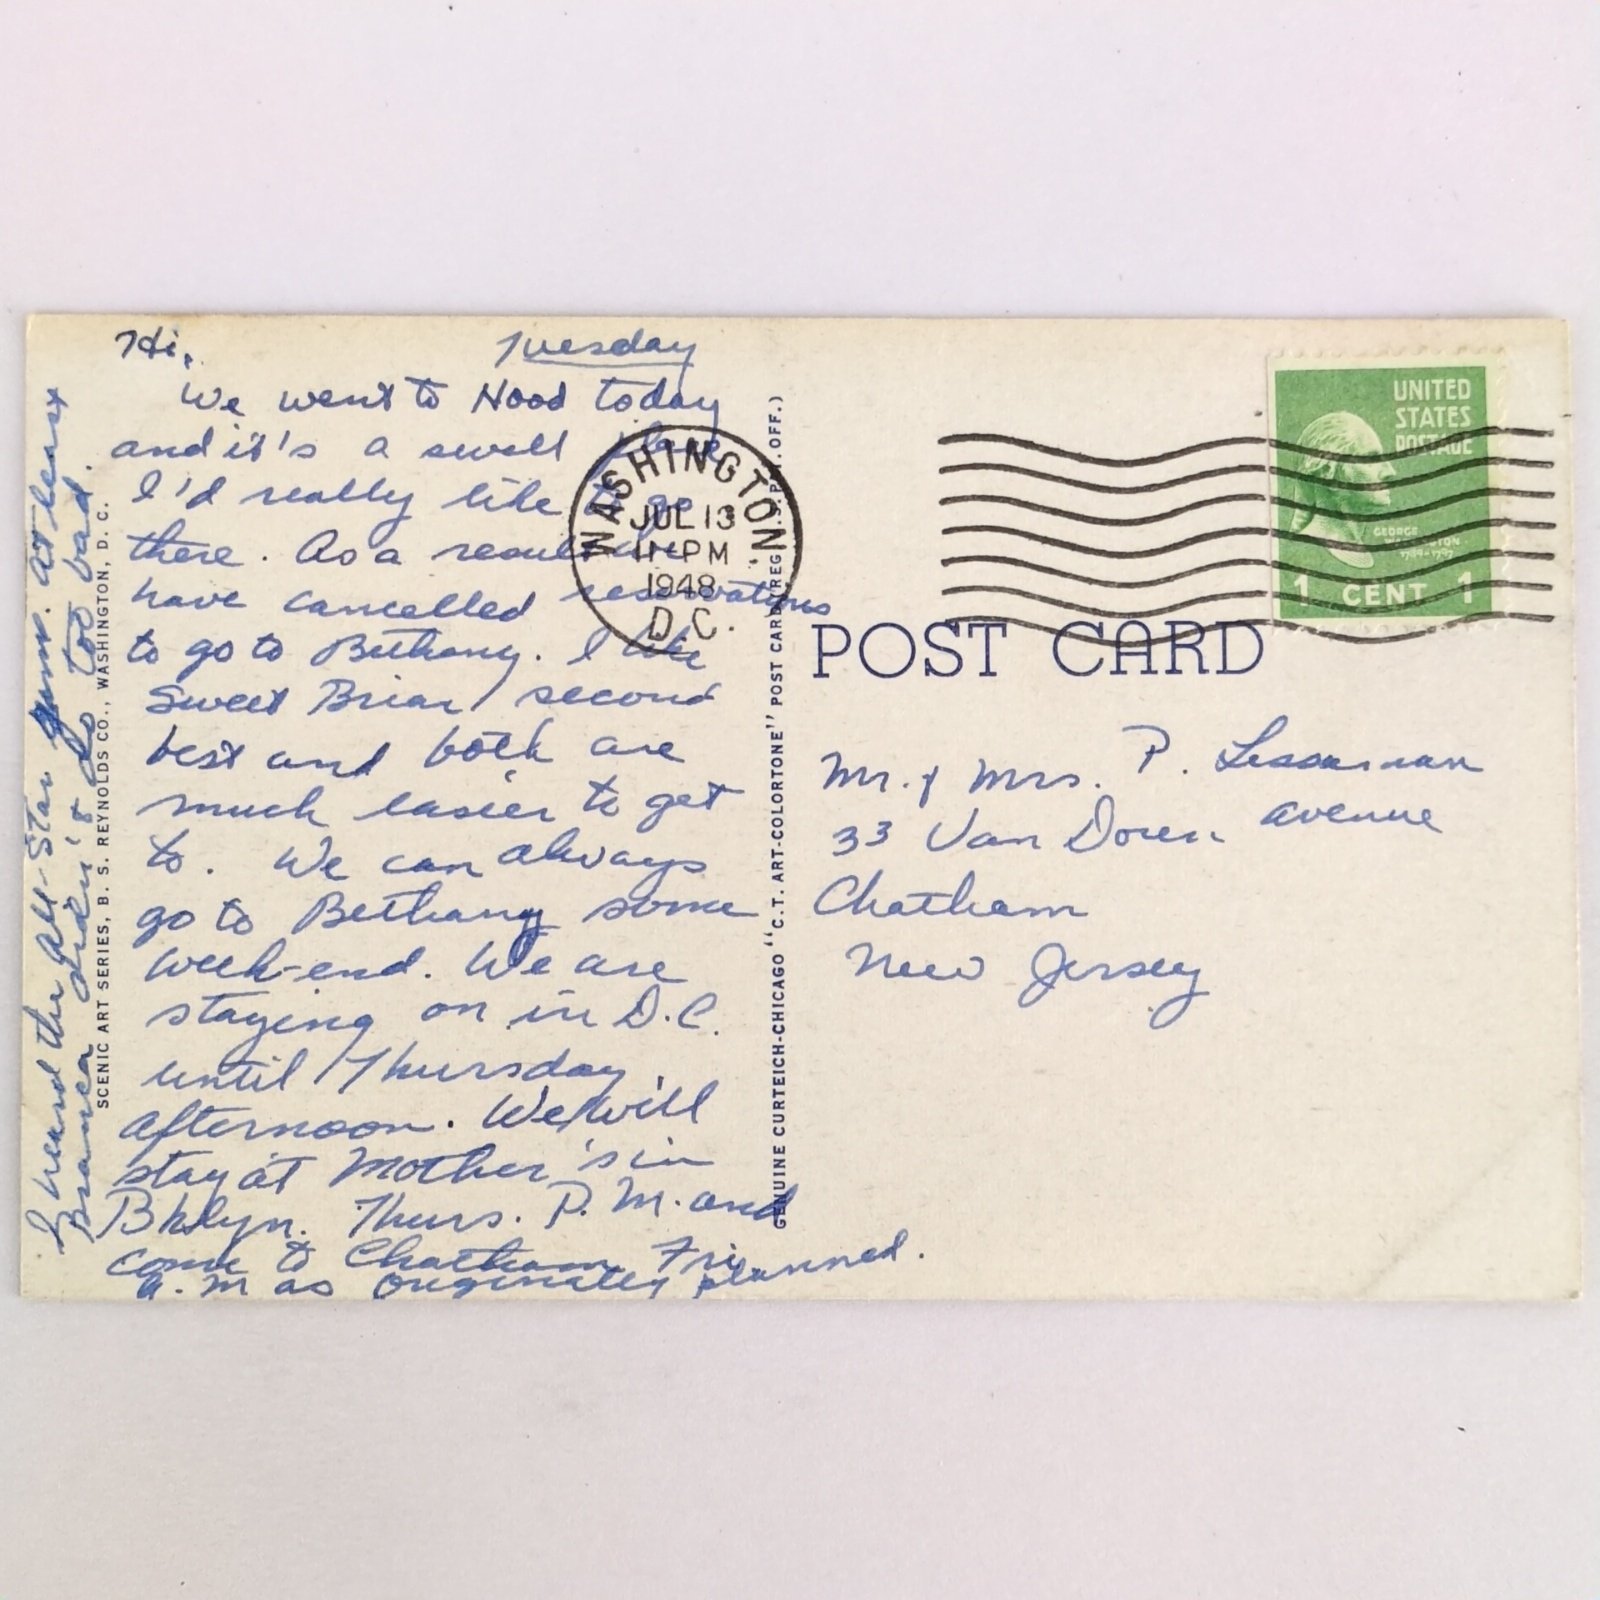 Hi,
Tuesday
We went to Hood today
and it's a swell place
I'd really like to go
there. As a result we
have cancelled reservations
to go to Bethany. I like
Sweet Briar second
best and both are
much easier to get
to. We can always
go to Bethany some
week-end. We are
staying on in D.C.
until Thursday
afternoon. We will
stay at Mother's in
Bklyn. Thurs. P.M. and
come to Chatham Fri.
a.m as originally planned.
I heard the All-Star game. At least
Branca didn't do too bad.
SCENIC ART SERIES, B. S. REYNOLDS CO., WASHINGTON, D. C.
WASHINGTON,
JUL 13
11 PM
1948
D.C.
GENUINE CURTEICH-CHICAGO "C.T. ART-COLORTONE" POST CARD (REG. U.S. PAT. OFF.)
UNITED
STATES
POSTAGE
GEORGE
WASHINGTON
1789-1797
1 CENT 1
POST CARD
Mr. & Mrs. P.
33 Van Doren Avenue
Chatham
New Jersey